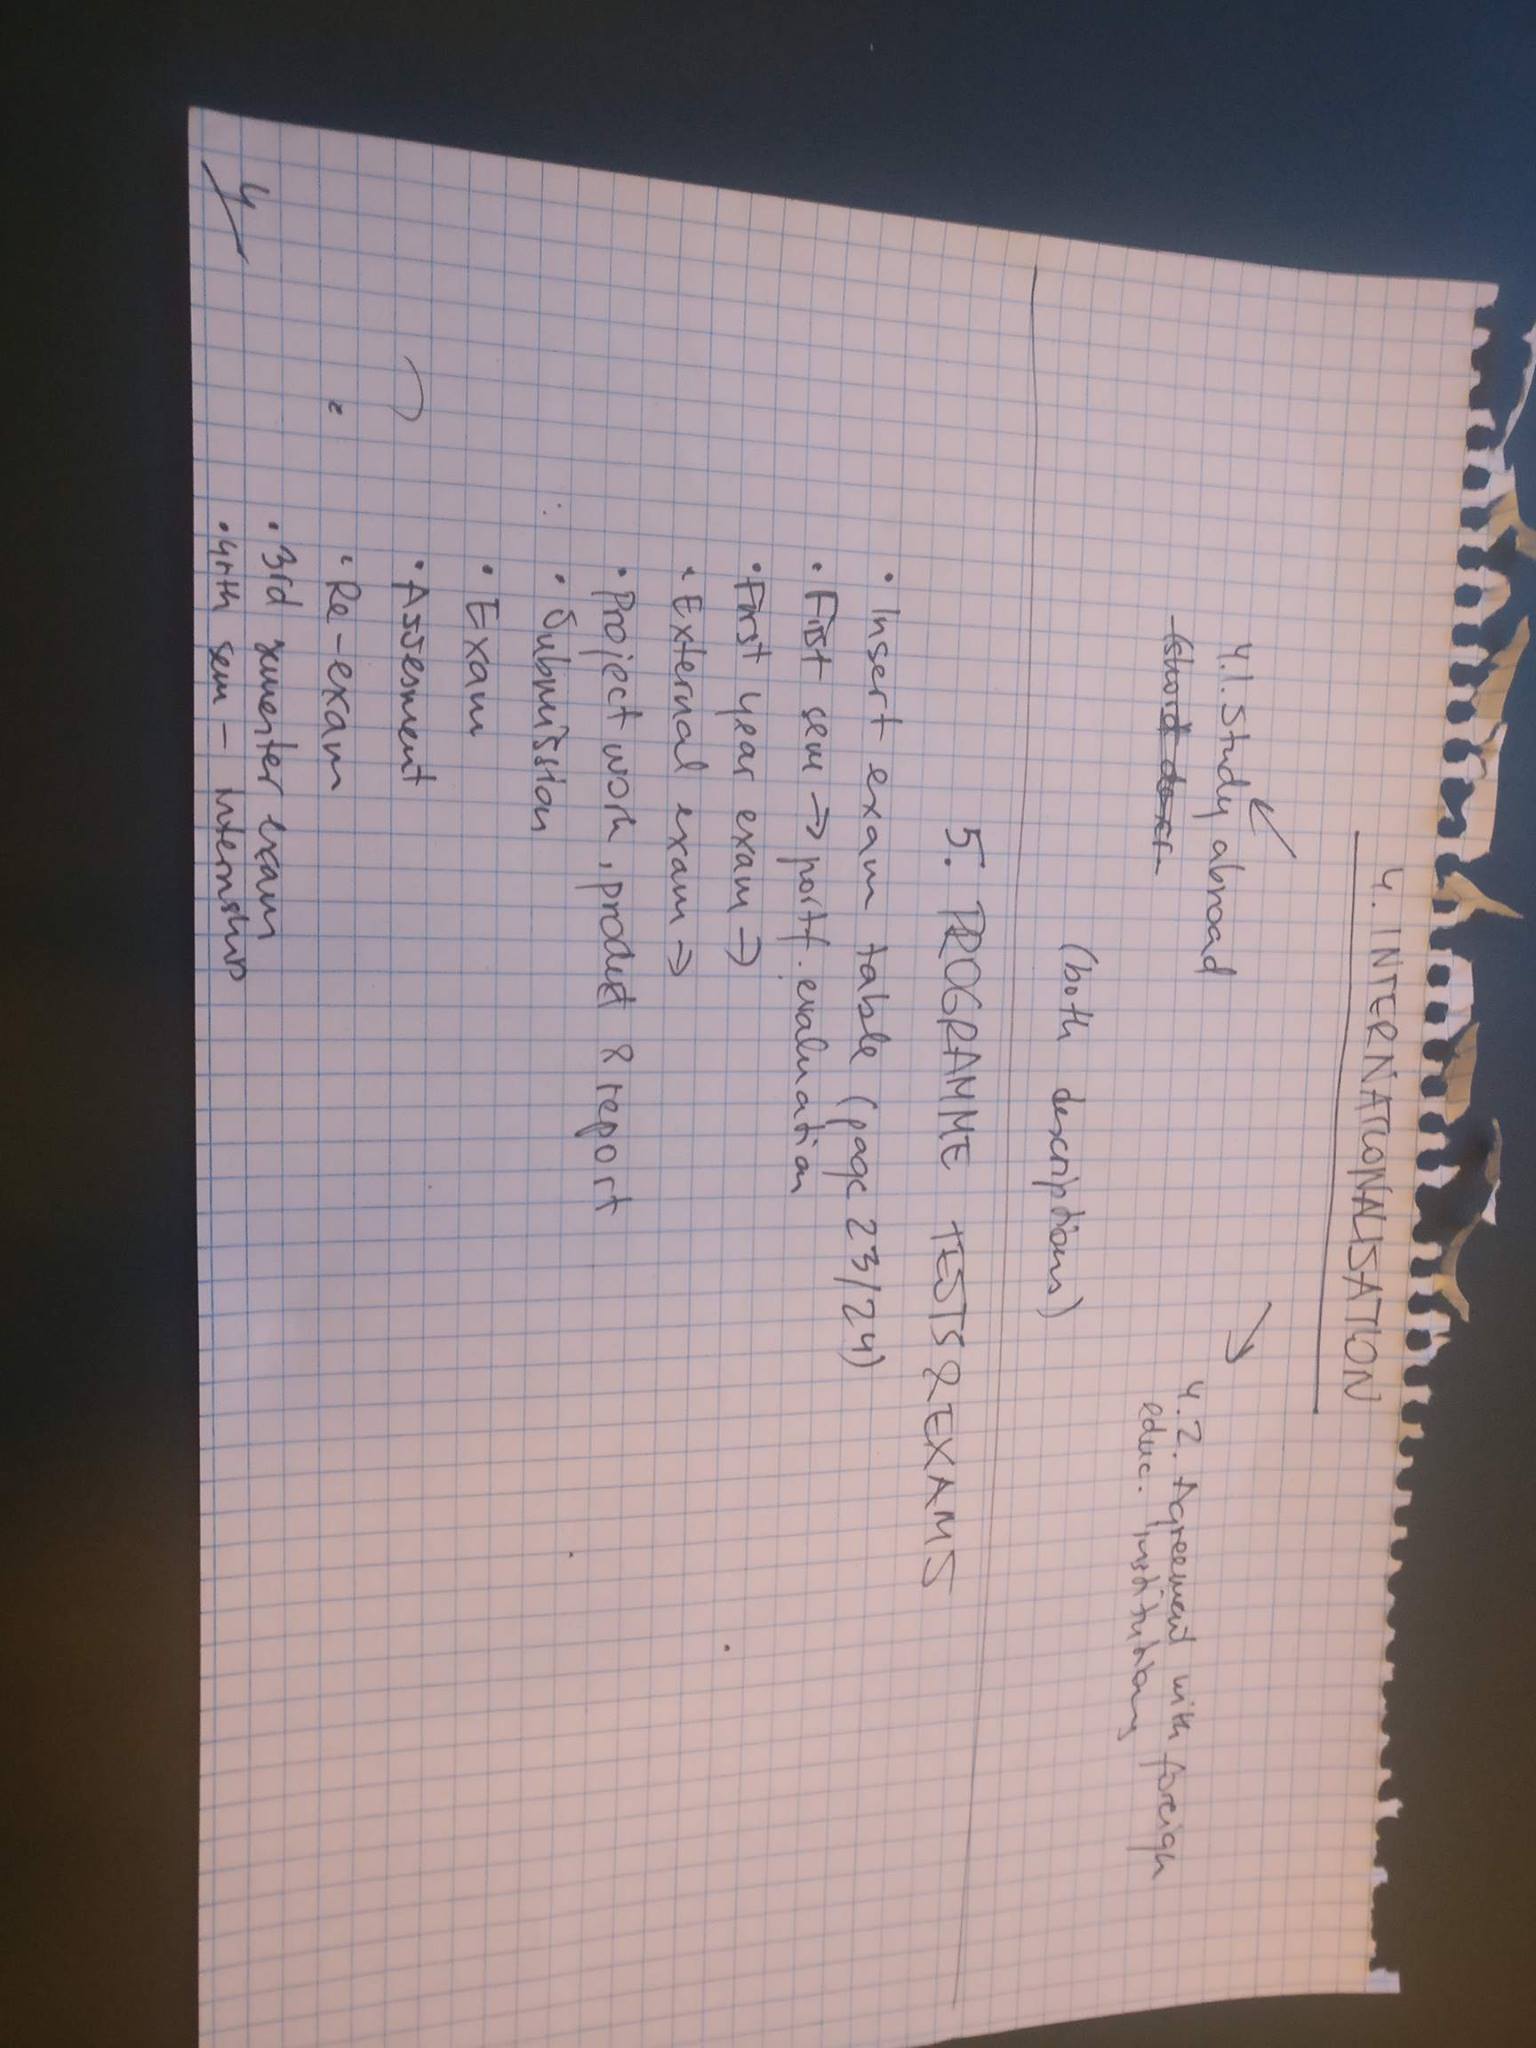 4. INTERNATIONALISATION
4.1. Study abroad
4.2. Agreement with foreign
educ. institutions
(both descriptions)
5. PROGRAMME TESTS & EXAMS
• Insert exam table (page 23/24)
• First sem → portf. evaluation
• First year exam →
• External exam →
• Project work, product & report
• Submission
• Exam
• Assesment
• Re-exam
• 3rd semester exam
• 4rth sem - Internship
4